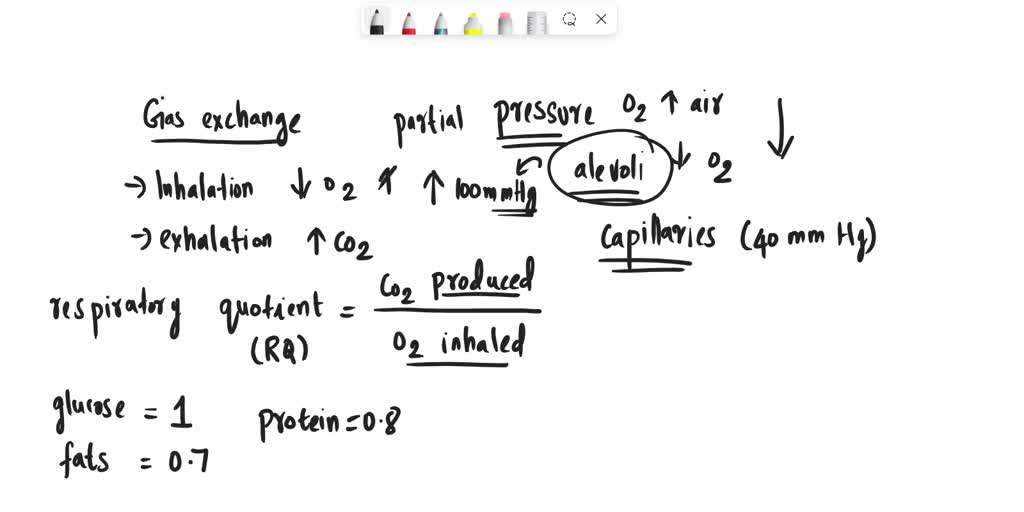 Gas exchange partial pressure O2 ↑ air ↓
→ Inhalation ↓ O2 ↑ 100 mmHg alevoli ↓ O2
→ exhalation ↑ CO2 capillaries (40 mm Hg)
respiratory quotient (RQ) = CO2 produced
O2 inhaled
glucose = 1 protein = 0.8
fats = 0.7